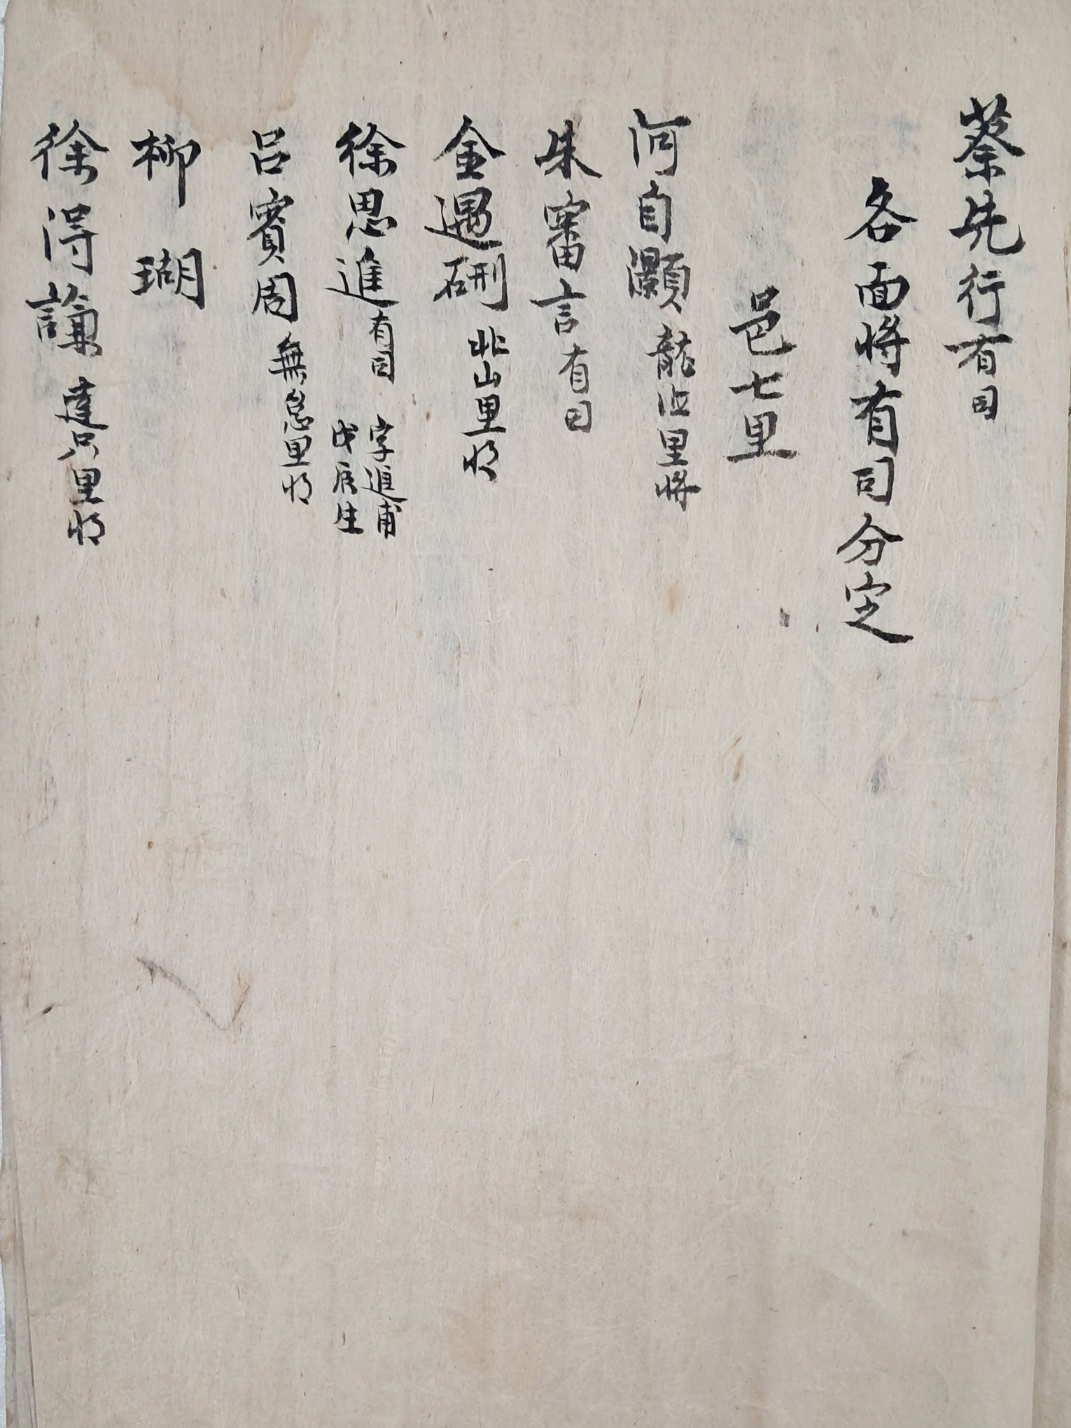 蔡先行有司
各面將有司分定
邑七里
河自灝龍江里將
朱審言有司
金遇硎北山里將
徐思進有司 字進甫 戊辰生
呂賓周無怠里將
柳瑚
徐得謙達只里將